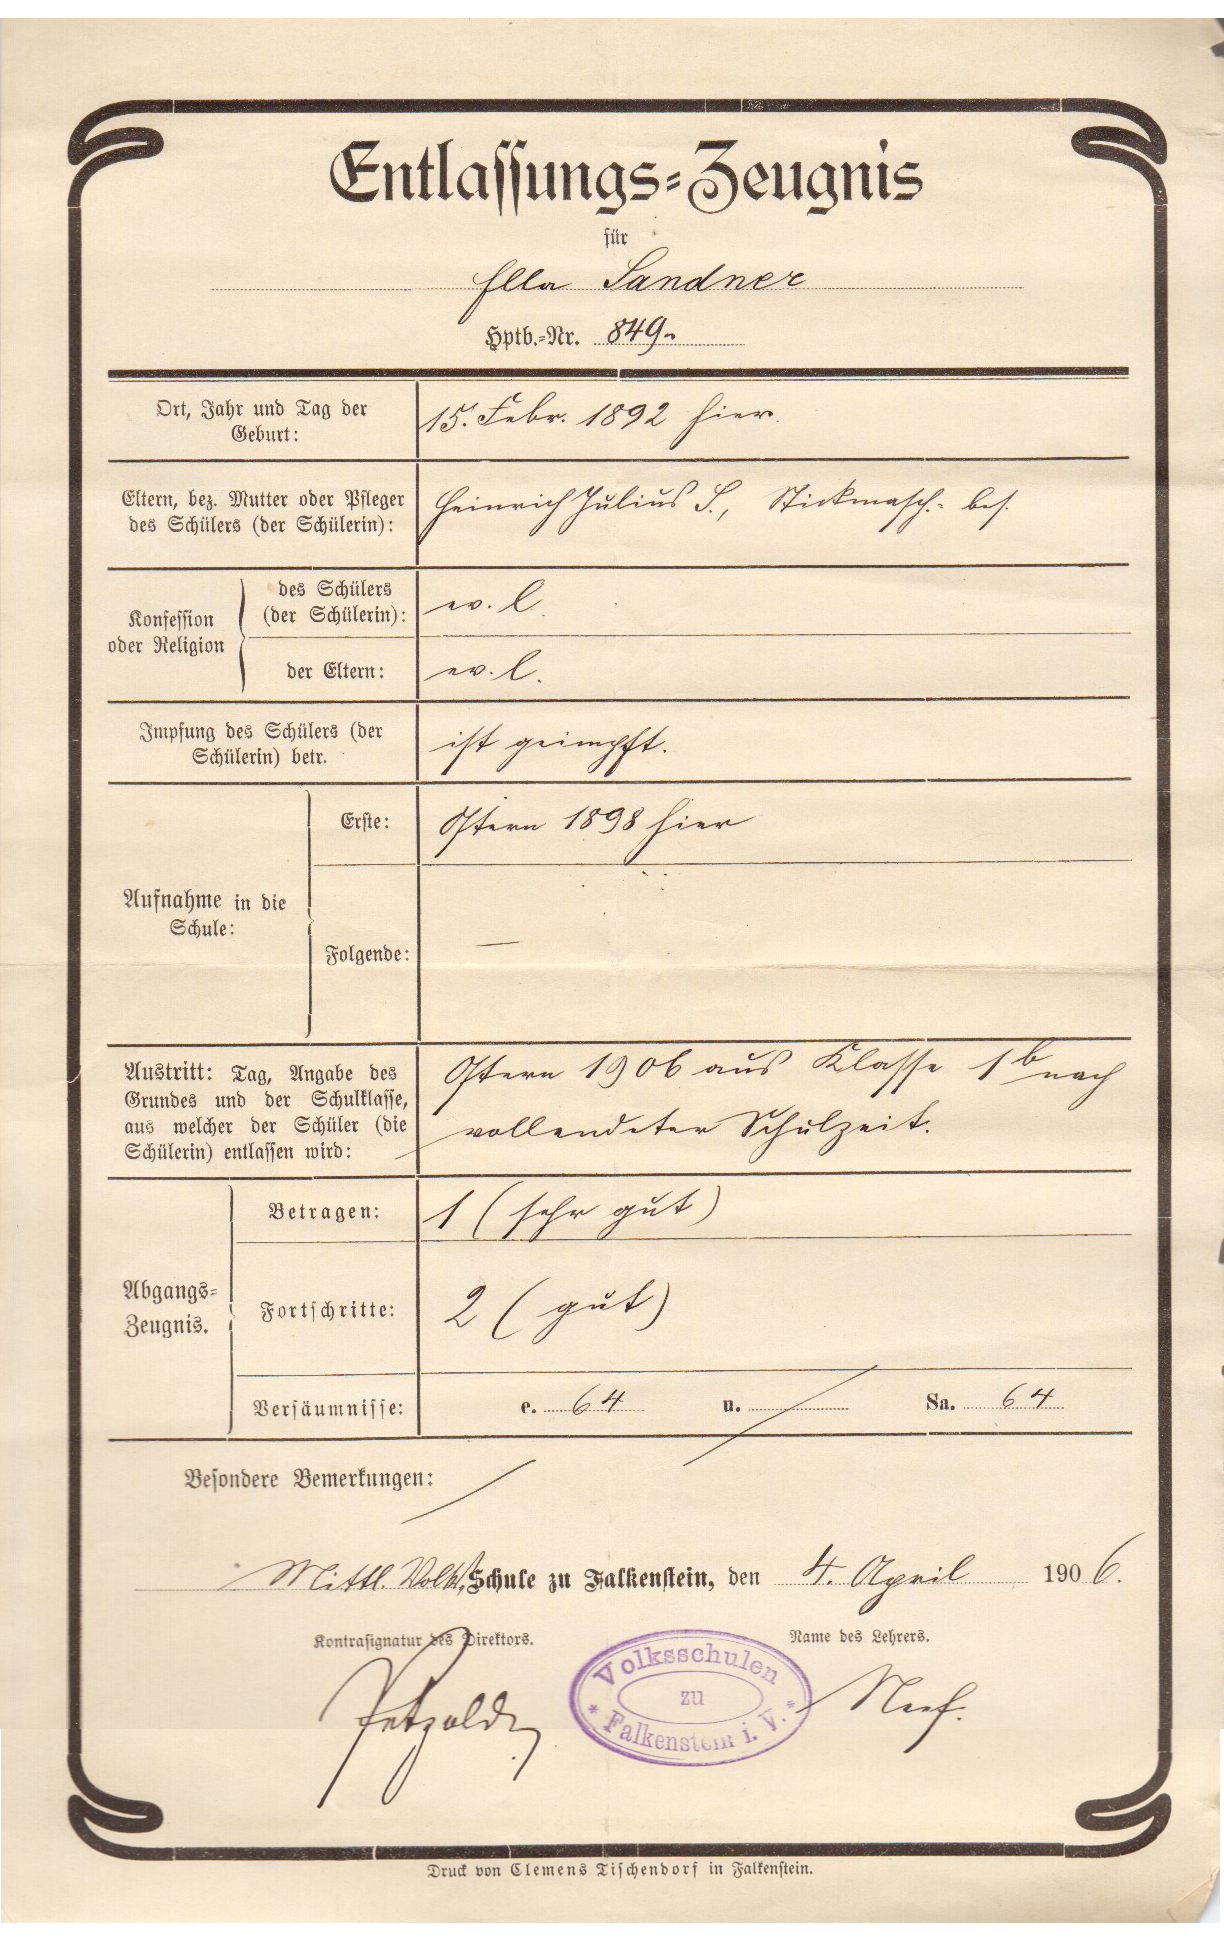 Entlassungs-Zeugnis
für
Ella Sandner
Hptb.-Nr. 849.
Ort, Jahr und Tag der
Geburt:
15. Febr. 1892 hier.
Eltern, bez. Mutter oder Pfleger
des Schülers (der Schülerin):
Heinrich Julius S., Stickmasch.- bes.
Konfession
oder Religion
des Schülers
(der Schülerin):
ev. l.
der Eltern:
ev. l.
Impfung des Schülers (der
Schülerin) betr.
ist geimpft.
Aufnahme in die
Schule:
Erste:
Ostern 1898 hier
Folgende:
—
Austritt: Tag, Angabe des
Grundes und der Schulklasse,
aus welcher der Schüler (die
Schülerin) entlassen wird:
Ostern 1906 aus Klasse 1b nach
vollendeter Schulzeit.
Abgangs-
Zeugnis.
Betragen:
1 (sehr gut)
Fortschritte:
2 (gut)
Versäumnisse:
e. 64 u. / Sa. 64
Besondere Bemerkungen: /
Mittl. Volks Schule zu Falkenstein, den 4. April 1906.
Kontrasignatur des Direktors.
Name des Lehrers.
Petzoldt
Volksschulen
zu
* Falkenstein i. V. *
Neef.
Druck von Clemens Tischendorf in Falkenstein.